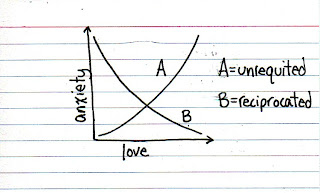 A
A=unrequited
B=reciprocated
B
anxiety
love